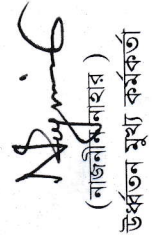 (নাজনীন নাহার)
উর্ধ্বতন মুখ্য কর্মকর্তা